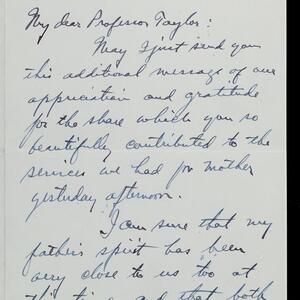 My dear Professor Taylor:
May I just send you
this additional message of our
appreciation and gratitude
for the share which you so
beautifully contributed to the
services we had for mother
yesterday afternoon.
I am sure that my
father's spirit has been
very close to us too at
this time and that both